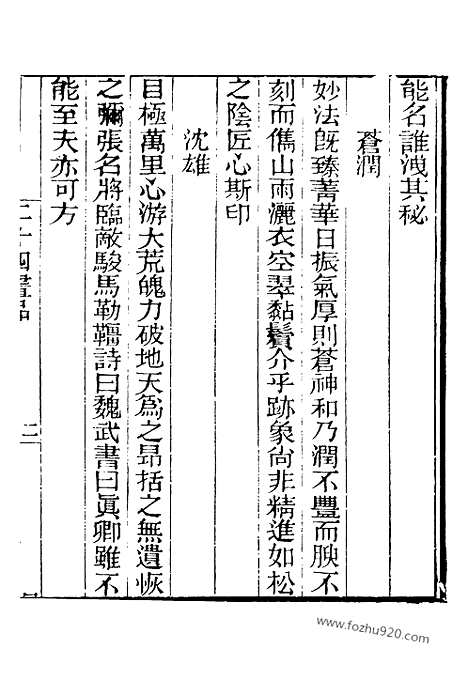 能名誰洩其秘
蒼潤
妙法旣臻菁華日振氣厚則蒼神和乃潤不豐而腴不
刻而儁山雨灑衣空翠黏鬢介乎跡象尚非精進如松
之陰匠心斯印
沈雄
目極萬里心游大荒魄力破地天爲之昂括之無遺恢
之彌張名將臨敵駿馬勒韁詩曰魏武書曰眞卿雖不
能至夫亦可方
二十四畫品
二
www.fozhu920.com